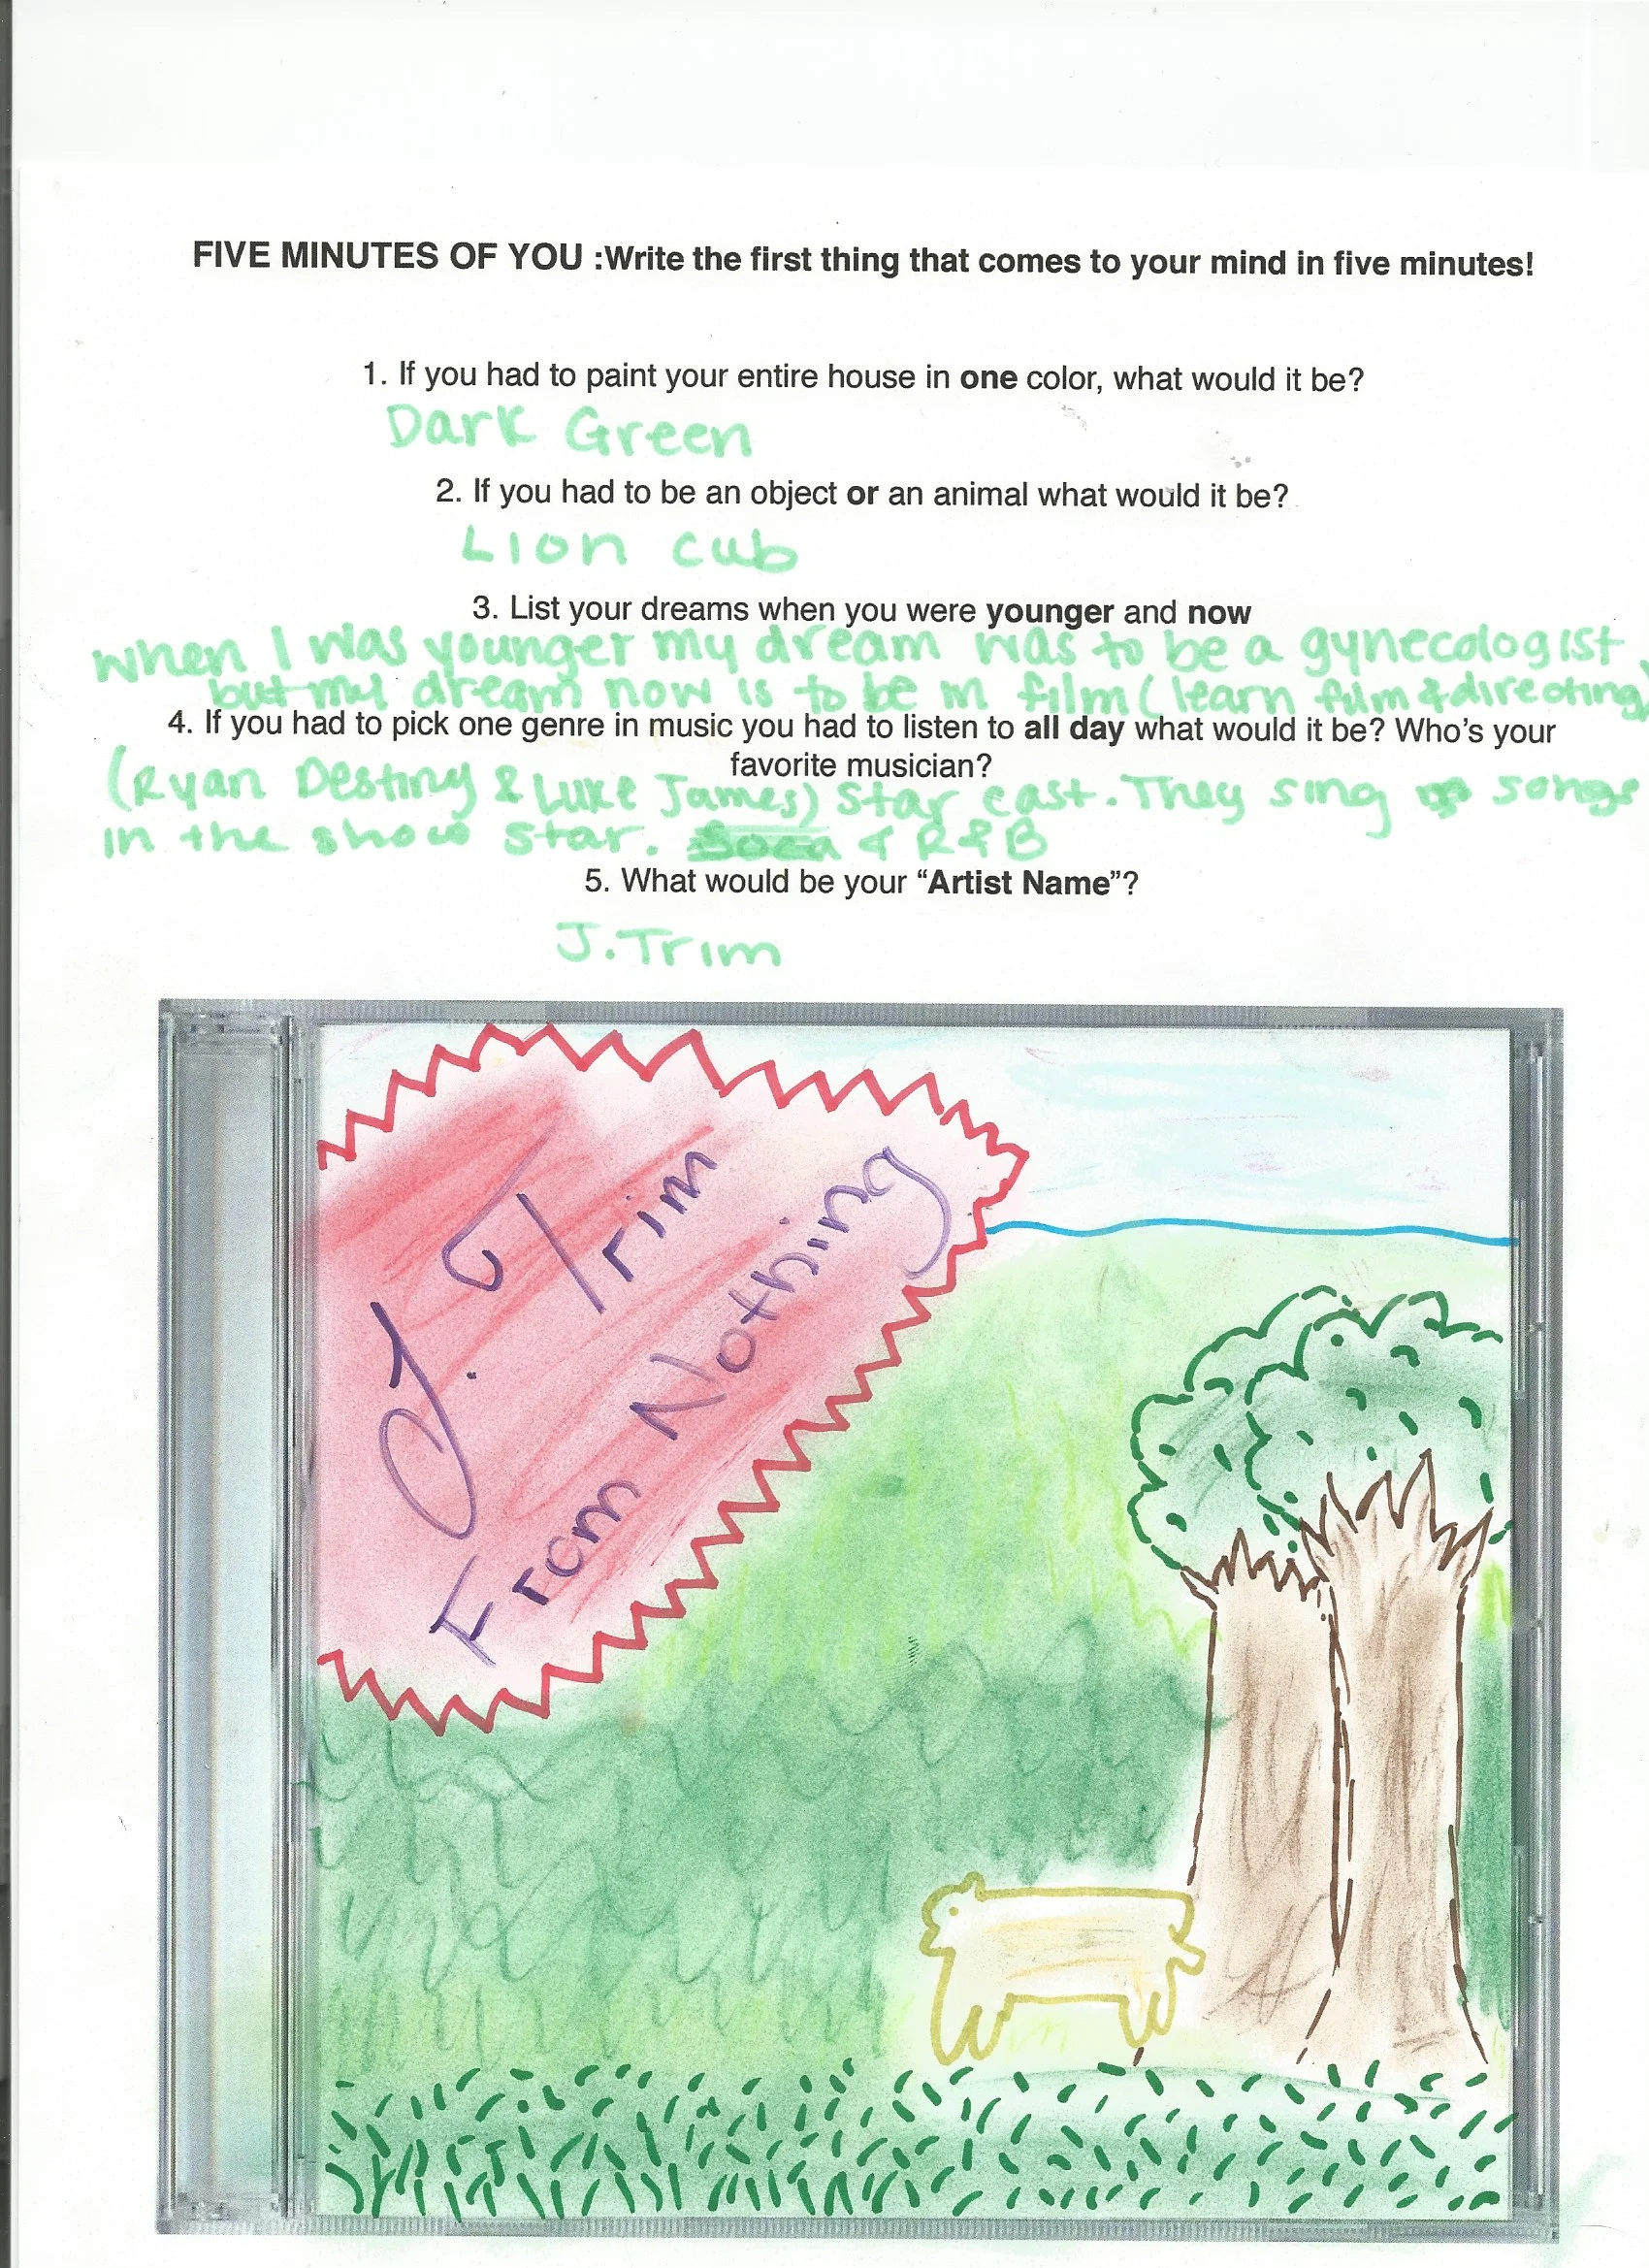 FIVE MINUTES OF YOU :Write the first thing that comes to your mind in five minutes!
1. If you had to paint your entire house in one color, what would it be?
Dark Green
2. If you had to be an object or an animal what would it be?
Lion cub
3. List your dreams when you were younger and now
when I was younger my dream was to be a gynecologist,
but my dream now is to be in film (learn film & directing)
4. If you had to pick one genre in music you had to listen to all day what would it be? Who's your
favorite musician?
(Ryan Destiny & Luke James) Star cast. They sing songs
in the show Star. Soca & R&B
5. What would be your “Artist Name”?
J. Trim
J. Trim
From Nothing